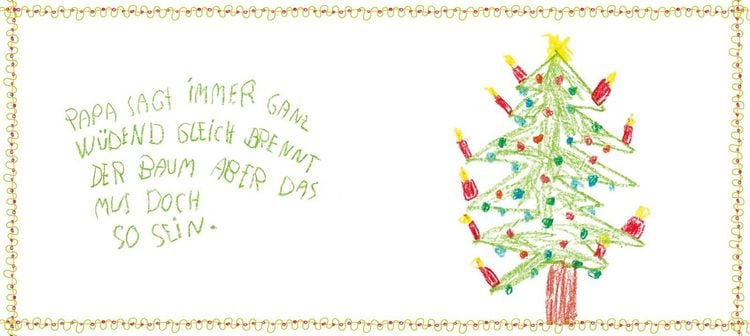 PAPA SAGT IMMER GANZ
WÜDEND GLEICH BRENNT
DER BAUM ABER DAS
MUS DOCH
SO SEIN.